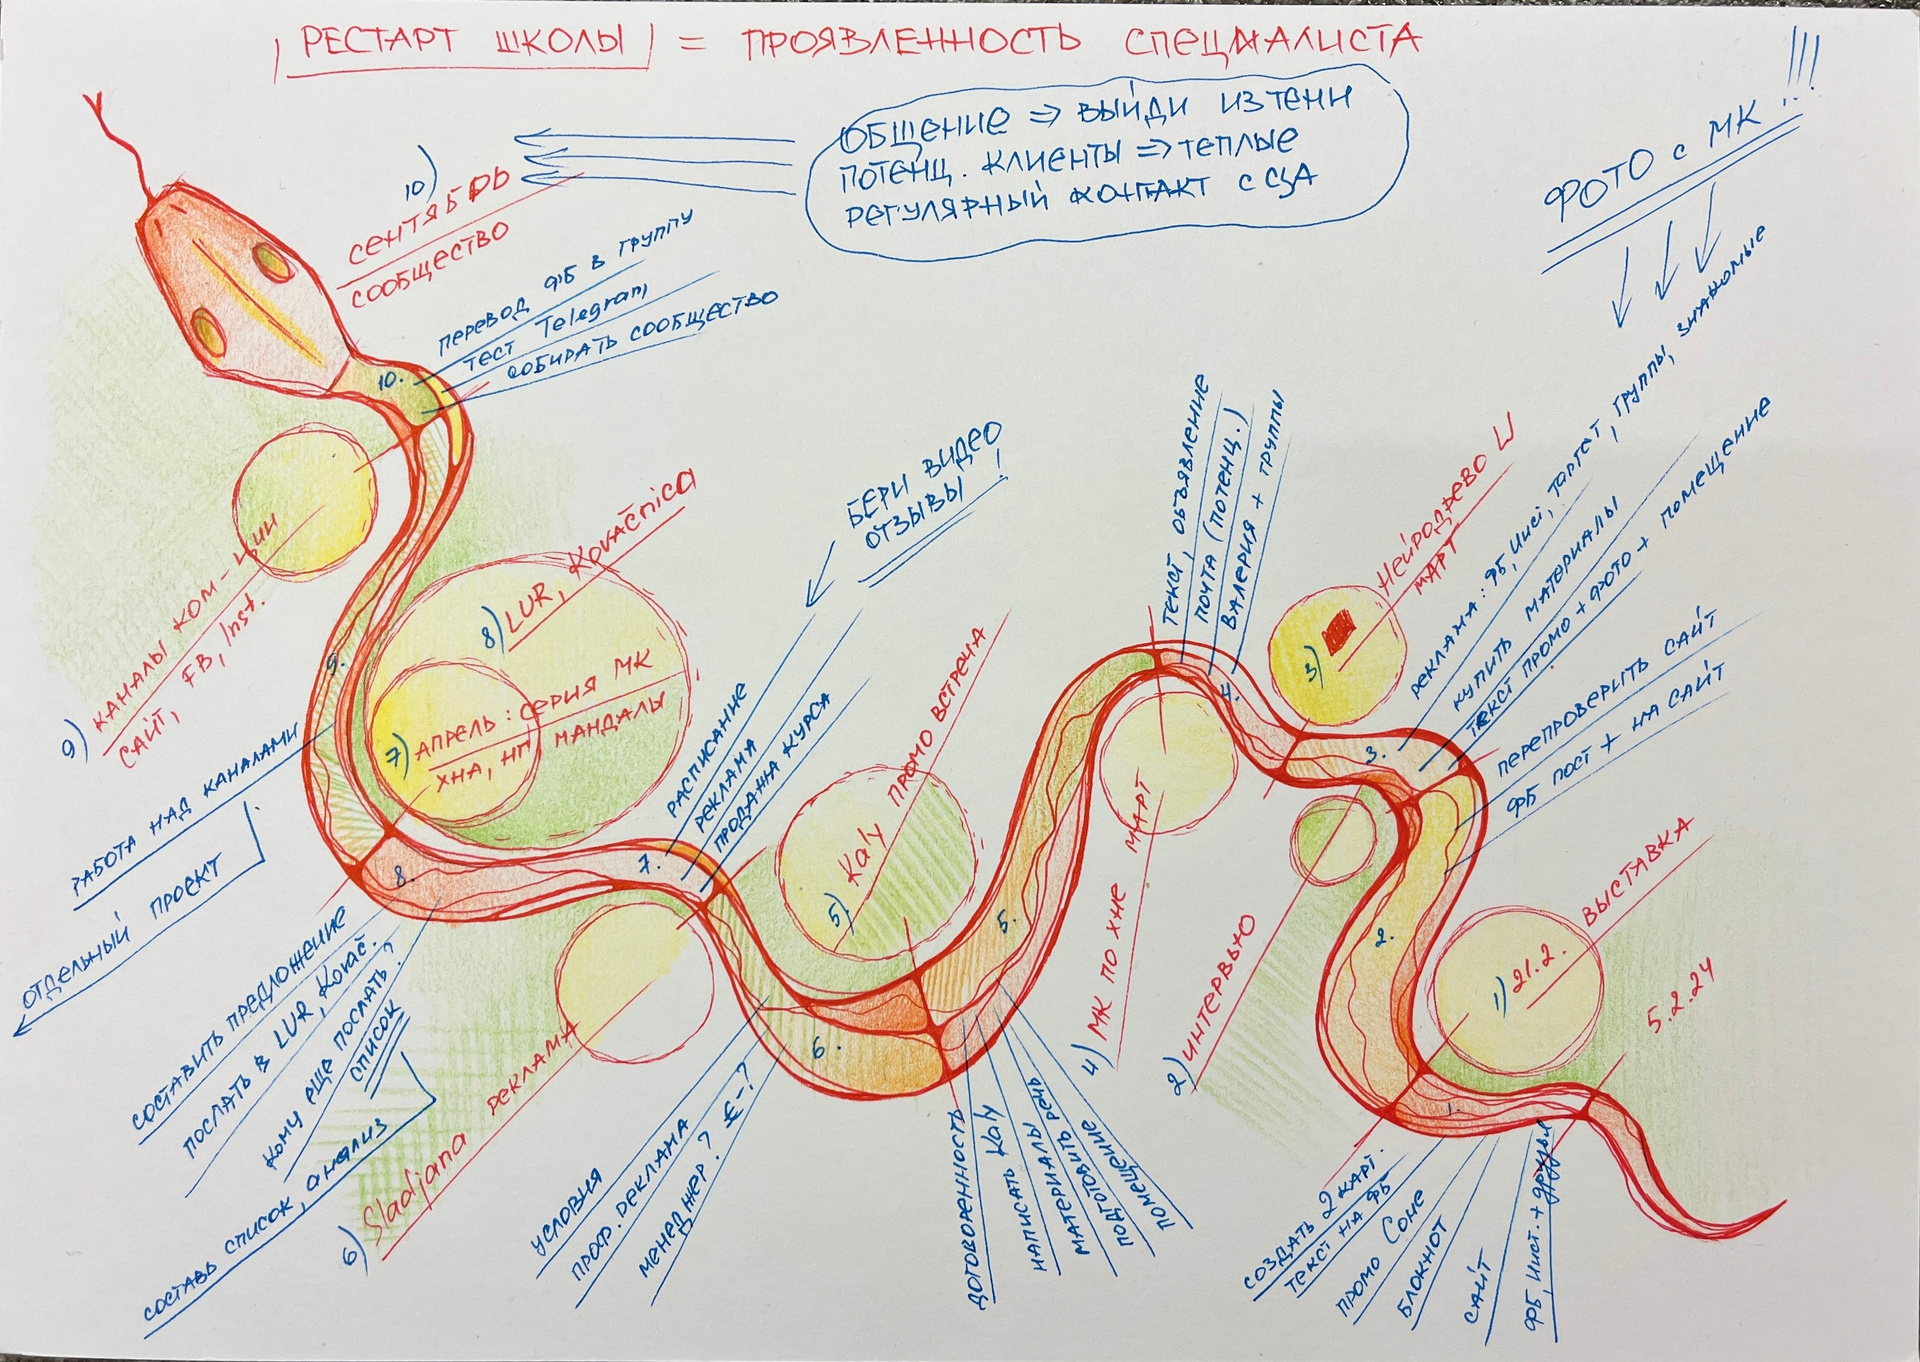 РЕСТАРТ ШКОЛЫ = ПРОЯВЛЕННОСТЬ СПЕЦИАЛИСТА
ОБЩЕНИЕ ⇒ ВЫЙДИ ИЗ ТЕНИ
ПОТЕНЦ. КЛИЕНТЫ ⇒ ТЕПЛЫЕ
РЕГУЛЯРНЫЙ КОНТАКТ С ЦА
ФОТО с МК !!!
10)
СЕНТЯБРЬ
СООБЩЕСТВО
ПЕРЕВОД ФБ В ГРУППУ
ТЕСТ Telegram
СОБИРАТЬ СООБЩЕСТВО
10.
9) КАНАЛЫ КОМ-ЦИИ
САЙТ, FB, Inst.
9.
РАБОТА НАД КАНАЛАМИ
ОТДЕЛЬНЫЙ ПРОЕКТ
8) LUR, Kovačnica
8.
СОСТАВИТЬ ПРЕДЛОЖЕНИЕ
ПОСЛАТЬ В LUR, Kovač.
КОМУ ЕЩЕ ПОСЛАТЬ?
СПИСОК
СОСТАВЬ СПИСОК, АНАЛИЗ
7) АПРЕЛЬ: СЕРИЯ МК
ХНА, НГ, МАНДАЛЫ
7.
БЕРИ ВИДЕО
ОТЗЫВЫ!
РАСПИСАНИЕ
РЕКЛАМА
ПРОДАЖА КУРСА
6) Sladjana РЕКЛАМА
6.
УСЛОВИЯ
ПРОФ. РЕКЛАМА
МЕНЕДЖЕР? €-?
5) Kaly ПРОМО ВСТРЕЧА
5.
ДОГОВОРЕННОСТЬ
НАПИСАТЬ Kaly
МАТЕРИАЛЫ
ПОДГОТОВИТЬ РЕЧЬ
ПОМЕЩЕНИЕ
4) МК ПО ХНЕ МАРТ
4.
ТЕКСТ, ОБЪЯВЛЕНИЕ
ПОЧТА (ПОТЕНЦ.)
ВАЛЕРИЯ + ГРУППЫ
3) НЕЙРОДРЕВО
МАРТ
3.
РЕКЛАМА: ФБ, Инст, ТАРГЕТ, ГРУППЫ, ЗНАКОМЫЕ
КУПИТЬ МАТЕРИАЛЫ
ТЕКСТ ПРОМО + ФОТО + ПОМЕЩЕНИЕ
2) ИНТЕРВЬЮ
2.
ПЕРЕПРОВЕРИТЬ САЙТ
ФБ ПОСТ + НА САЙТ
1) 21.2. ВЫСТАВКА
5.2.24
1.
СОЗДАТЬ 2 КАРТ.
ТЕКСТ НА ФБ
ПРОМО Соне
БЛОКНОТ
САЙТ
ФБ, Инст. + друзья